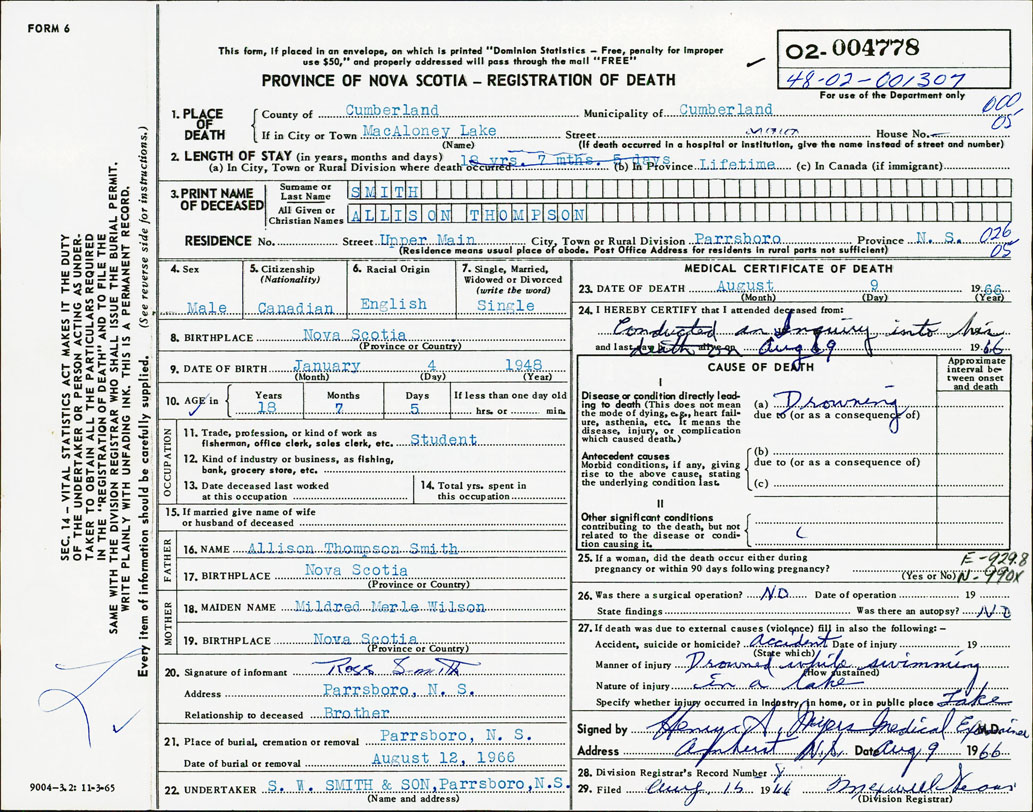 FORM 6
This form, if placed in an envelope, on which is printed "Dominion Statistics — Free, penalty for improper
use $50," and properly addressed will pass through the mail "FREE"
PROVINCE OF NOVA SCOTIA — REGISTRATION OF DEATH
02-004778
48-02-001307
For use of the Department only
000
05
SEC. 14 — VITAL STATISTICS ACT MAKES IT THE DUTY
OF THE UNDERTAKER OR PERSON ACTING AS UNDER-
TAKER TO OBTAIN ALL THE PARTICULARS REQUIRED
IN THE "REGISTRATION OF DEATH" AND TO FILE THE
SAME WITH THE DIVISION REGISTRAR WHO SHALL ISSUE THE BURIAL PERMIT.
WRITE PLAINLY WITH UNFADING INK. THIS IS A PERMANENT RECORD.
Every item of information should be carefully supplied. (See reverse side for instructions.)
1. PLACE OF DEATH
County of Cumberland Municipality of Cumberland
If in City or Town MacAloney Lake Street House No.
(Name) (If death occurred in a hospital or institution, give the name instead of street and number)
2. LENGTH OF STAY (in years, months and days) 18 yrs. 7 mths. 5 days
(a) In City, Town or Rural Division where death occurred (b) In Province Lifetime (c) In Canada (if immigrant)
3. PRINT NAME OF DECEASED
Surname or Last Name SMITH
All Given or Christian Names ALLISON THOMPSON
RESIDENCE No. Street Upper Main City, Town or Rural Division Parrsboro Province N. S.
(Residence means usual place of abode. Post Office Address for residents in rural parts not sufficient)
026
05
4. Sex
Male
5. Citizenship
(Nationality)
Canadian
6. Racial Origin
English
7. Single, Married,
Widowed or Divorced
(write the word)
Single
8. BIRTHPLACE Nova Scotia
(Province or Country)
9. DATE OF BIRTH January 4 1948
(Month) (Day) (Year)
10. AGE in Years Months Days If less than one day old
18 7 5 hrs. or min.
OCCUPATION
11. Trade, profession, or kind of work as
fisherman, office clerk, sales clerk, etc. Student
12. Kind of industry or business, as fishing,
bank, grocery store, etc.
13. Date deceased last worked
at this occupation
14. Total yrs. spent in
this occupation
15. If married give name of wife
or husband of deceased
FATHER
16. NAME Allison Thompson Smith
17. BIRTHPLACE Nova Scotia
(Province or Country)
MOTHER
18. MAIDEN NAME Mildred Merle Wilson
19. BIRTHPLACE Nova Scotia
(Province or Country)
20. Signature of informant Ross Smith
Address Parrsboro, N. S.
Relationship to deceased Brother
21. Place of burial, cremation or removal Parrsboro, N. S.
Date of burial or removal August 12, 1966
22. UNDERTAKER S. W. SMITH & SON, Parrsboro, N.S.
(Name and address)
9004-3.2: 11-3-65
MEDICAL CERTIFICATE OF DEATH
23. DATE OF DEATH August 9 1966
(Month) (Day) (Year)
24. I HEREBY CERTIFY that I attended deceased from:
Conducted an Inquiry into his
and last saw alive on death on Aug 9 1966
CAUSE OF DEATH
Approximate interval between onset and death
I
Disease or condition directly lead-
ing to death (This does not mean
the mode of dying, e.g., heart fail-
ure, asthenia, etc. It means the
disease, injury, or complication
which caused death.)
(a) Drowning
due to (or as a consequence of)
Antecedent causes
Morbid conditions, if any, giving
rise to the above cause, stating
the underlying condition last.
(b)
due to (or as a consequence of)
(c)
II
Other significant conditions
contributing to the death, but not
related to the disease or condi-
tion causing it.
25. If a woman, did the death occur either during
pregnancy or within 90 days following pregnancy?
(Yes or No)
E-929.8
N-990X
26. Was there a surgical operation? NO Date of operation 19
State findings Was there an autopsy? NO
27. If death was due to external causes (violence) fill in also the following:—
Accident, suicide or homicide? accident Date of injury 19
(State which)
Manner of injury Drowned while swimming
(How sustained)
Nature of injury in a lake
Specify whether injury occurred in Industry, in home, or in public place Lake
Signed by Henry A. Myers Medical Examiner M.D.
Address Amherst N.S. Date Aug 9 1966
28. Division Registrar's Record Number 8
29. Filed Aug. 15 1966
(Division Registrar)